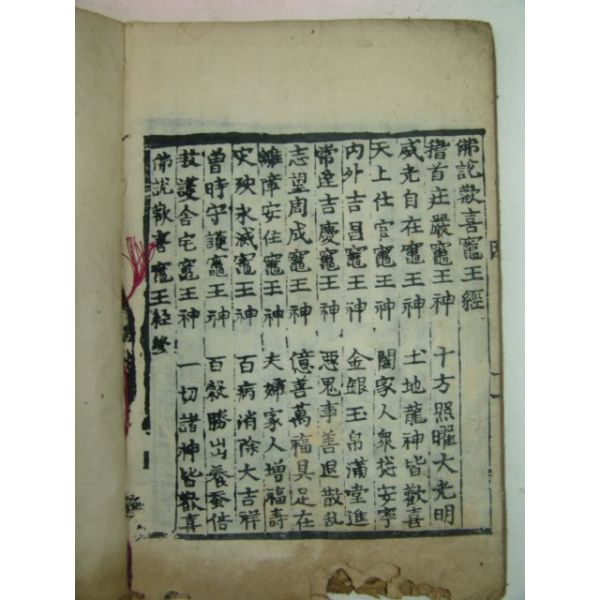 佛說歡喜竈王經
稽首庄嚴竈王神 十方照曜大光明
威光自在竈王神 土地龍神皆歡喜
天上仕官竈王神 闔家人衆揔安寧
內外吉昌竈王神 金銀玉帛滿堂進
常逢吉慶竈王神 惡鬼事善退散乱
志望周成竈王神 億善萬福具足在
離障安住竈王神 夫婦家人增福壽
灾殃永滅竈王神 百病消除大吉祥
曾時守護竈王神 百穀勝出養蚕倍
救護舍宅竈王神 一切諸神皆歡喜
佛說歡喜竈王経終